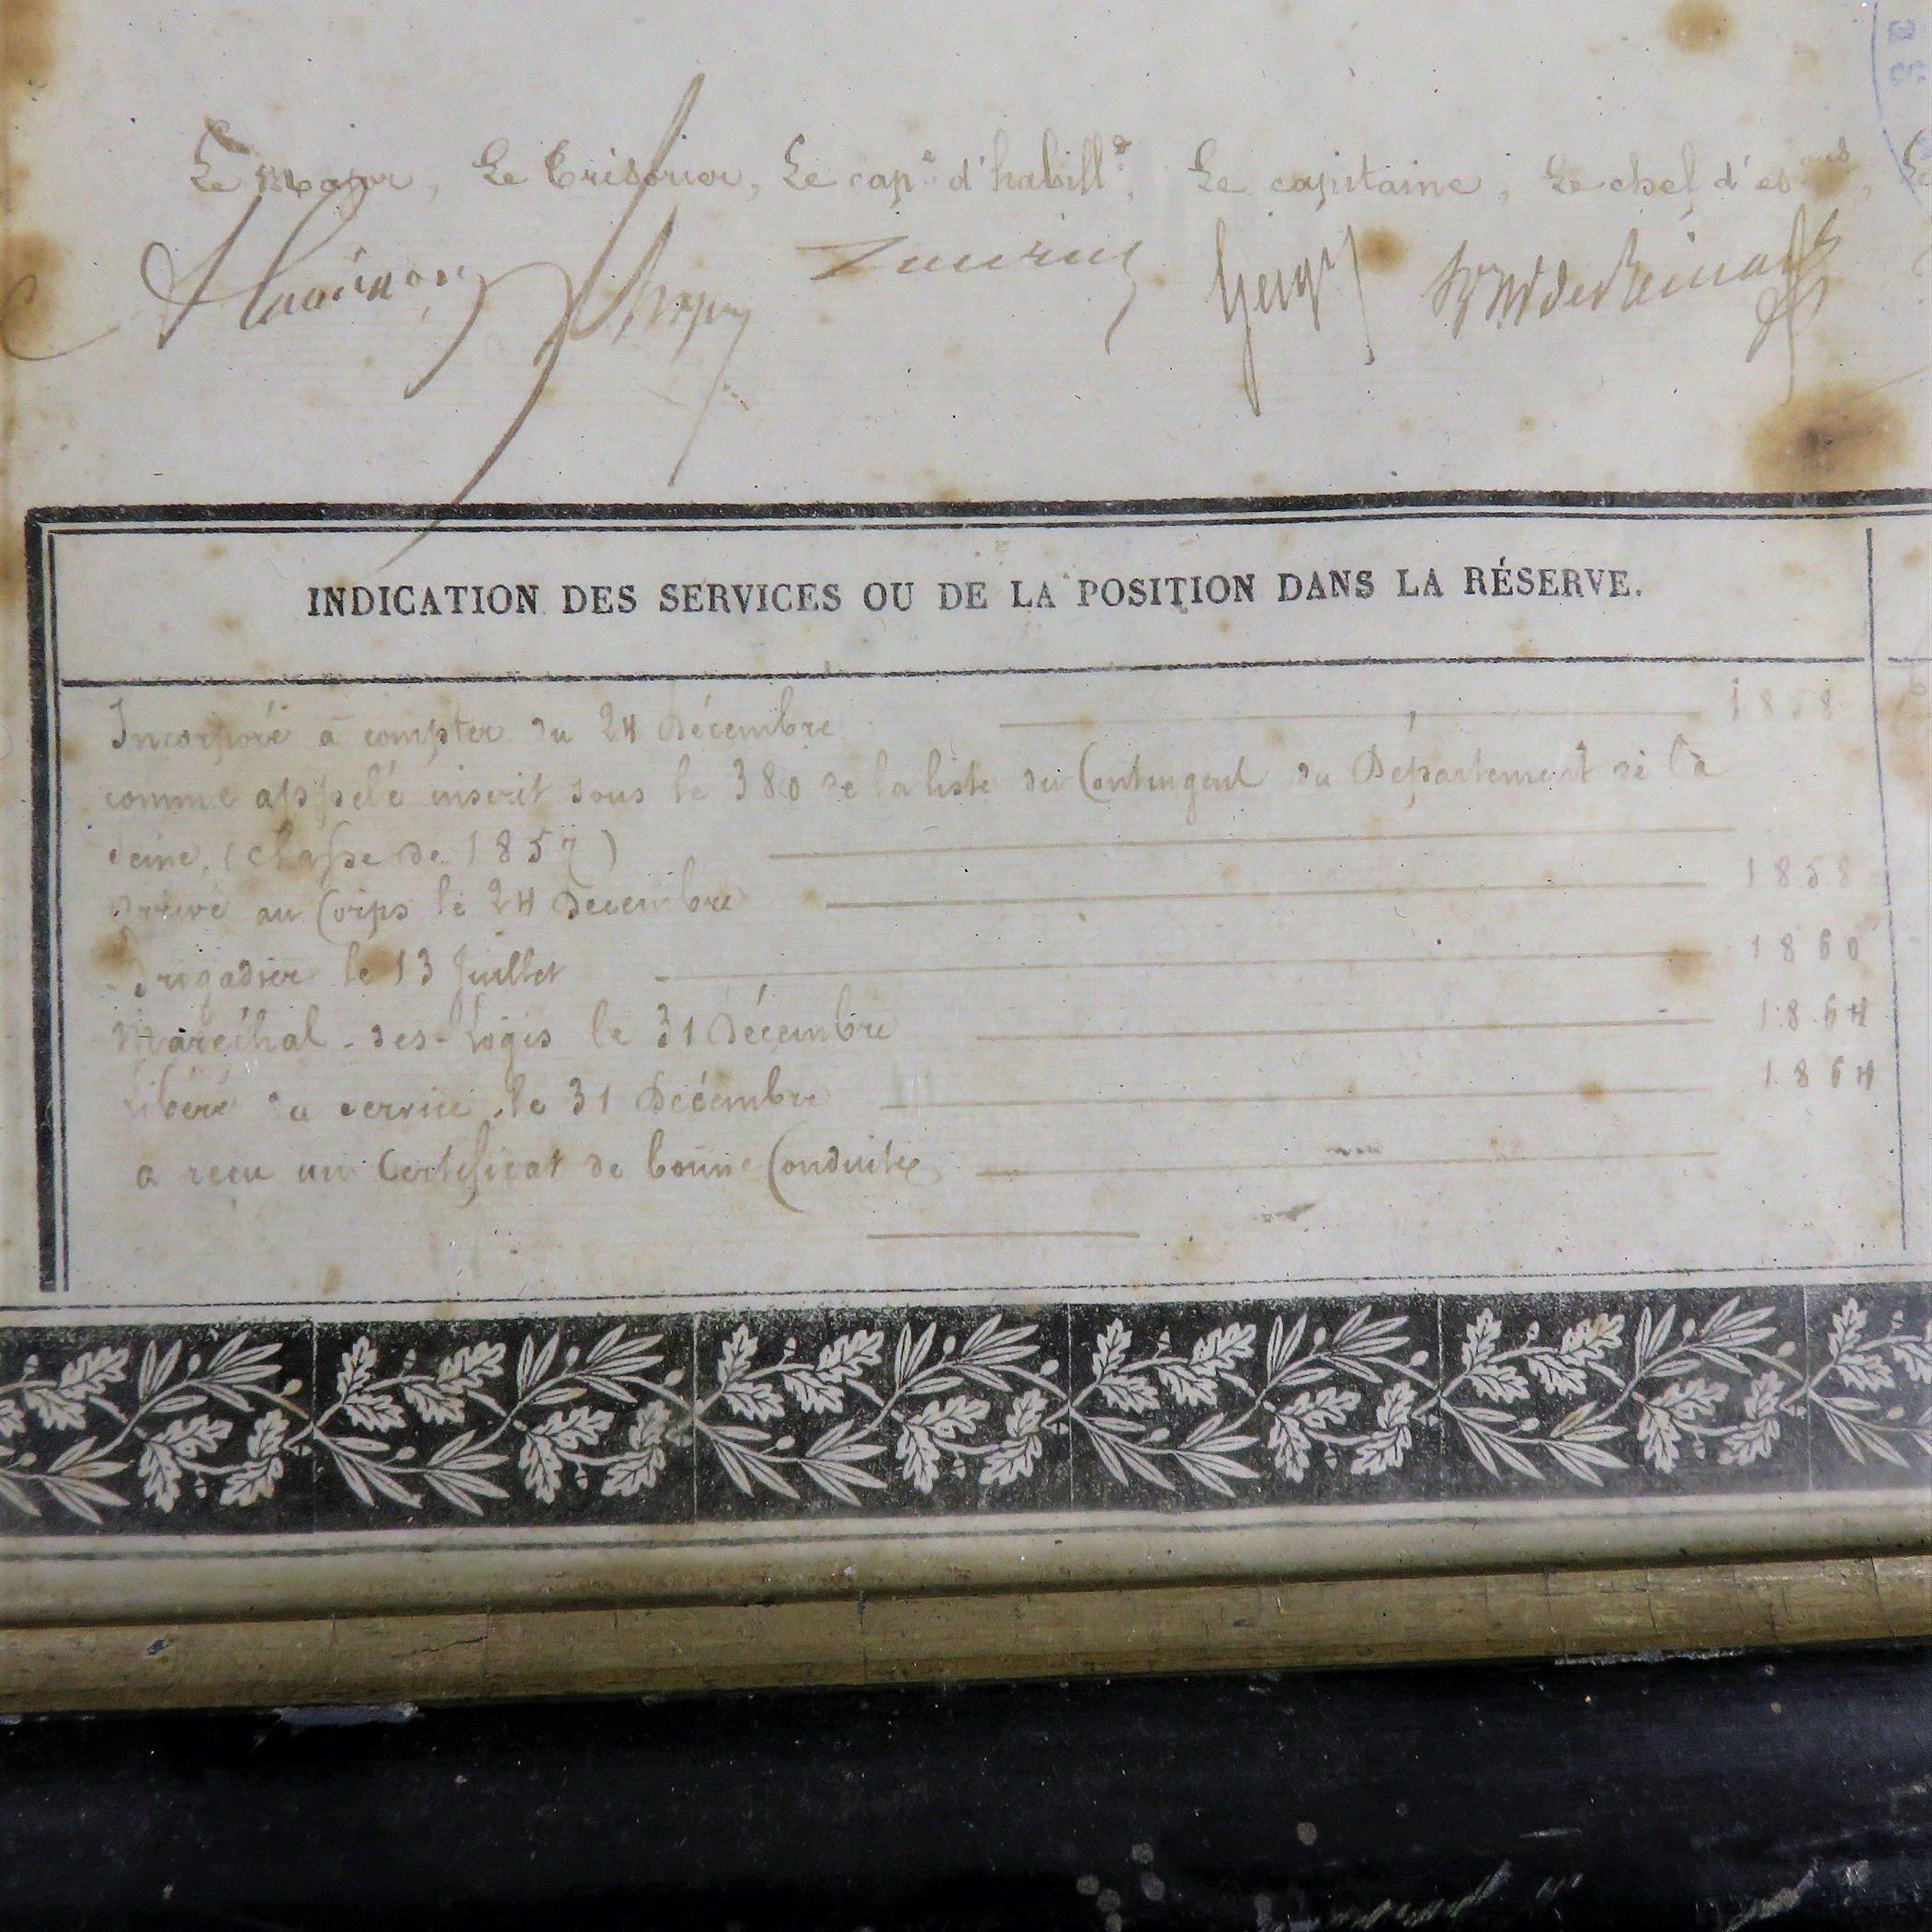 Le Major, Le Trésorier, Le cap.ne d'habill.t, Le capitaine, Le chef d'es.ons,
INDICATION DES SERVICES OU DE LA POSITION DANS LA RÉSERVE.
Incorporé à compter du 24 Décembre 1858
comme appelé inscrit sous le 380 de la liste du Contingent du Département de la
Seine, (classe de 1857)
Arrivé au Corps le 24 Décembre 1858
Brigadier le 13 Juillet 1860
Maréchal-des-Logis le 31 Décembre 1864
Libéré du service le 31 Décembre 1864
a reçu un Certificat de bonne Conduite